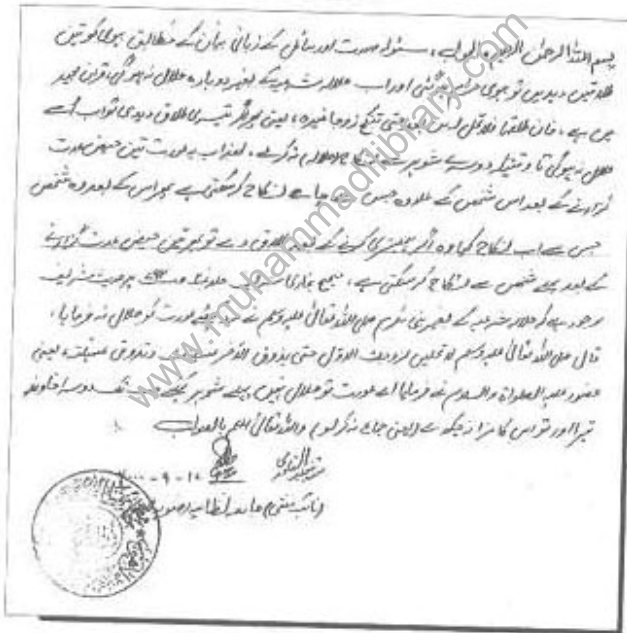 بسم اللہ الرحمٰن الرحیم الجواب، مسئولہ صورت اور سائل کے زبانی بیان کے مطابق بیوی کو تین
طلاقیں دیدیں تو بیوی حرام ہوگئی اور اب حلالہ شرعیہ کے بغیر دوبارہ حلال نہ ہوگی، قرآن مجید
میں ہے، فان طلقھا فلا تحل لہ من بعد حتی تنکح زوجا غیرہ، یعنی پھر اگر تیسری طلاق دیدی تو اب اسے
حلال نہ ہوگی تا وقتیکہ دوسرے شوہر سے نکاح نہ کرلے، لھذا اب یہ عورت تین حیض عدت
گزارنے کے بعد اس شخص کے علاوہ جس سے چاہے نکاح کرسکتی ہے پھر اس کے بعد وہ شخص
جس سے اب نکاح کیا وہ اگر ہمبستری کرنے کے بعد طلاق دے تو پھر تین حیض عدت گزارنے
کے بعد پہلے شخص سے نکاح کرسکتی ہے، صحیح بخاری جلد پر حدیث شریف
موجود ہے کہ حلالہ شرعیہ کے بغیر نبی مکرم صلی اللہ تعالیٰ علیہ وسلم نے عورت کو حلال نہ فرمایا،
قال صلی اللہ تعالیٰ علیہ وسلم لا تحلین لزوجک الاول حتی یذوق الآخر عسیلتک وتذوقی عسیلتہ، یعنی
حضور علیہ الصلوٰۃ والسلام نے فرمایا اے عورت تو حلال نہیں پہلے شوہر کیلئے جب تک دوسرا خاوند
تیرا اور تو اس کا مزا نہ چکھ لے (یعنی جماع نہ کرلو) واللہ تعالیٰ اعلم بالصواب
نائب مفتی جامعہ نظامیہ رضویہ
www.muhammadilibrary.com